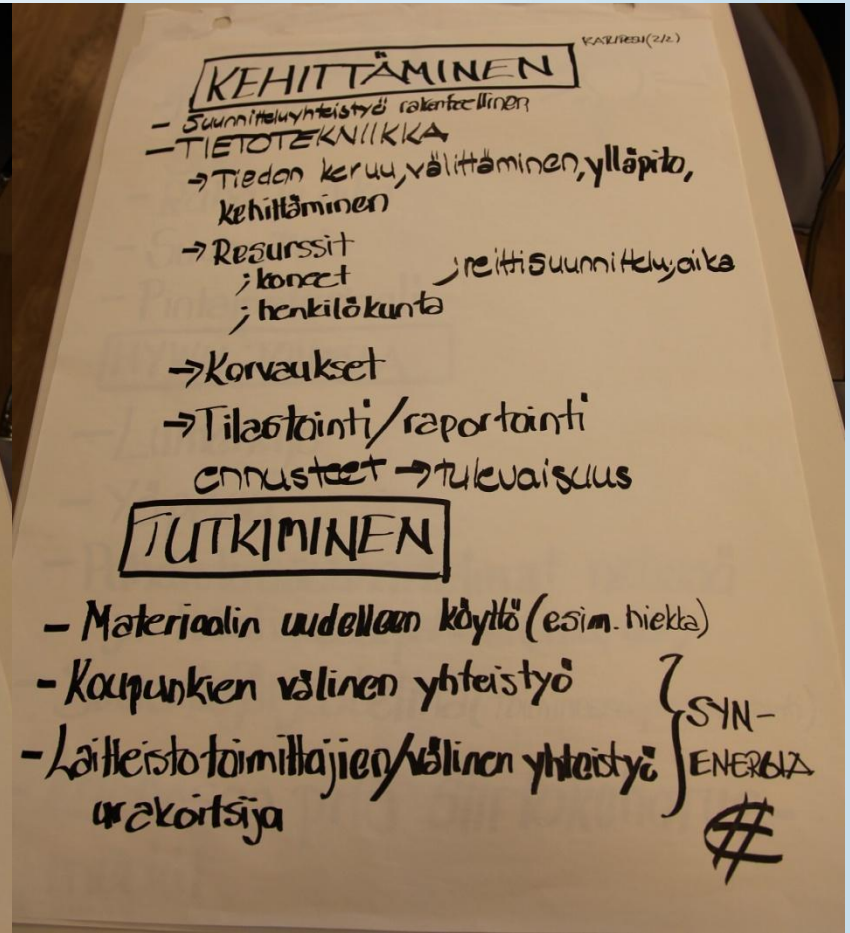 KEHITTÄMINEN
- Suunnitteluyhteistyö rakenteellinen
- TIETOTEKNIIKKA
→ Tiedon keruu, välittäminen, ylläpito,
kehittäminen
→ Resurssit
; koneet ; reittisuunnittelu; aika
; henkilökunta
→ Korvaukset
→ Tilastointi/raportointi
ennusteet → tulevaisuus
TUTKIMINEN
- Materiaalin uudelleen käyttö (esim. hiekka)
- Kaupunkien välinen yhteistyö
- Laitteistotoimittajien/välinen yhteistyö
urakoitsija
SYN-
ENERGIA
#